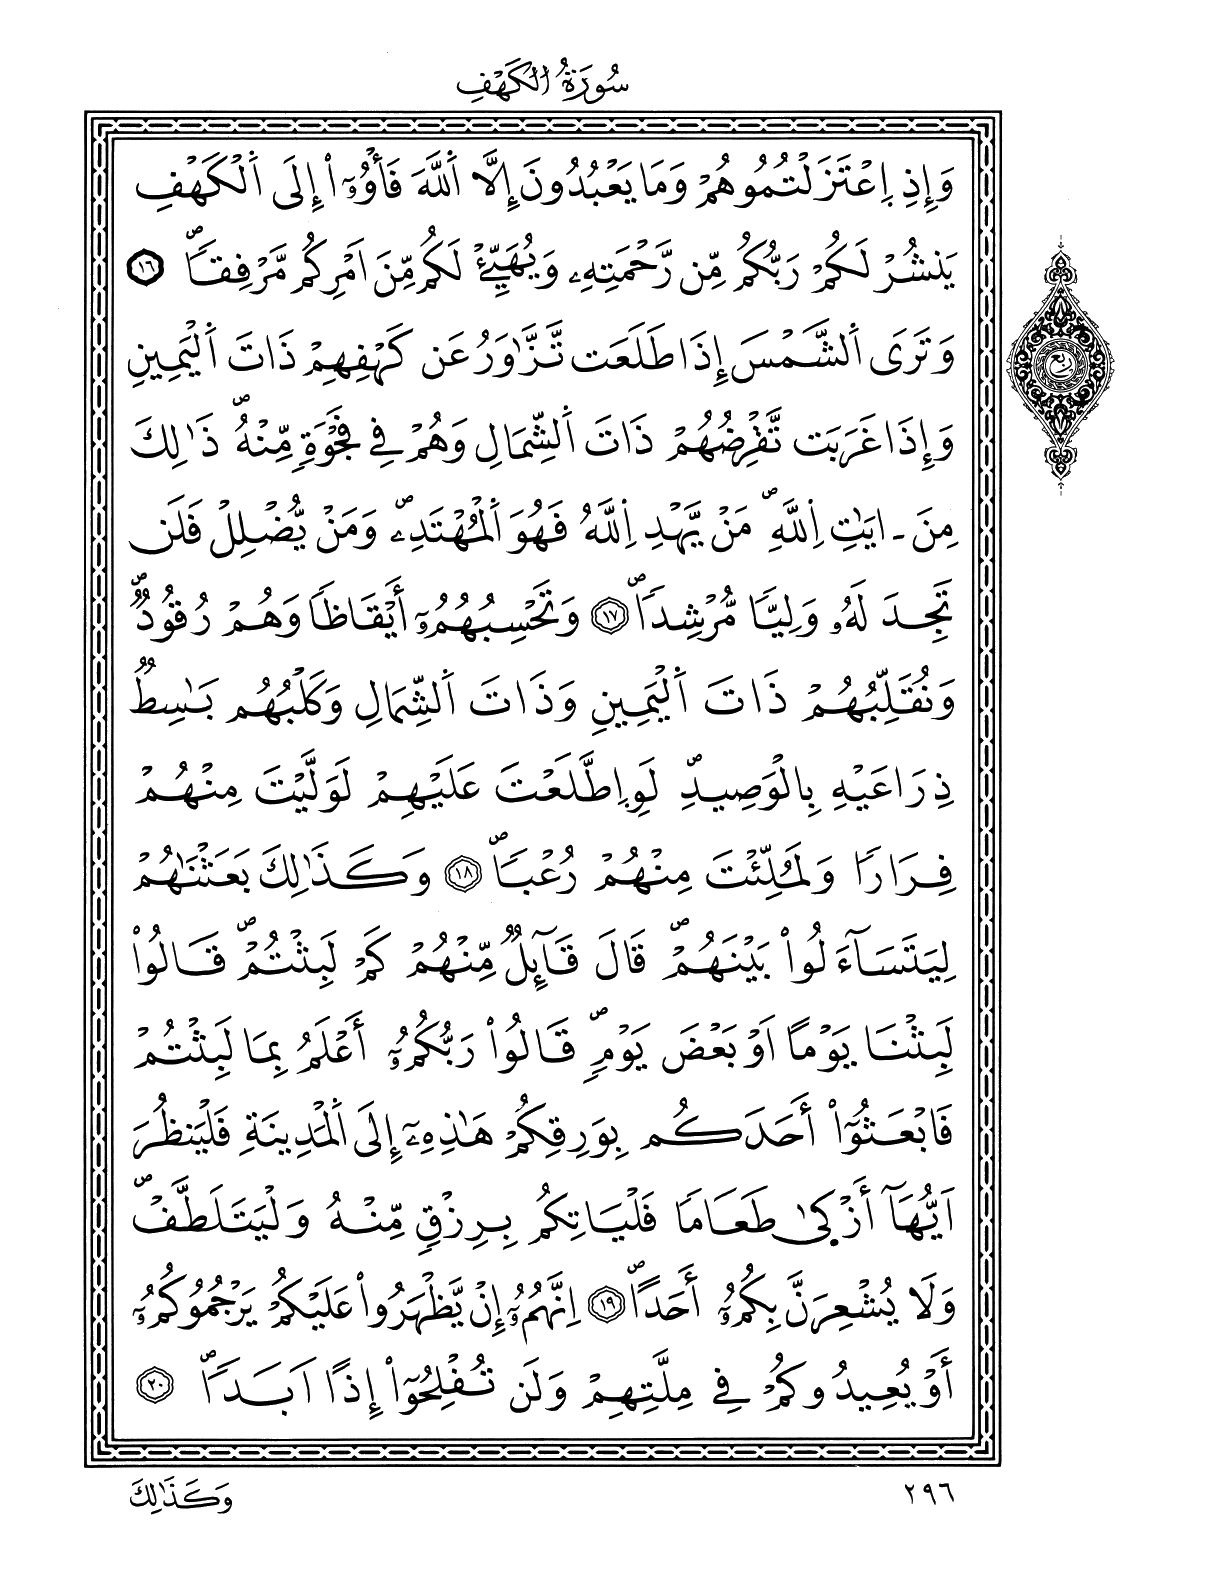 سُورَةُ الكَهْفِ
وَإِذِ اِعْتَزَلْتُمُوهُمْ وَمَا يَعْبُدُونَ إِلَّا اَللَّهَ فَأْوُۥٓاْ إِلَى اَلْكَهْفِ
يَنشُرْ لَكُمْ رَبُّكُم مِّن رَّحْمَتِهِۦ وَيُهَيِّئْ لَكُم مِّنَ اَمْرِكُم مَّرْفِقاًۖ ١٦
ربع
وَتَرَى اَلشَّمْسَ إِذَا طَلَعَت تَّزَّٰوَرُ عَن كَهْفِهِمْ ذَاتَ اَلْيَمِينِ
وَإِذَا غَرَبَت تَّقْرِضُهُمْ ذَاتَ اَلشِّمَالِ وَهُمْ فِي فَجْوَةٍ مِّنْهُۖ ذَٰلِكَ
مِنَ ـ ايَٰتِ اِللَّهِۖ مَنْ يَّهْدِ اِللَّهُ فَهُوَ اَلْمُهْتَدِۦۖ وَمَنْ يُّضْلِلْ فَلَن
تَجِدَ لَهُۥ وَلِيّاً مُّرْشِداًۖ ١٧ وَتَحْسِبُهُمُۥٓ أَيْقَاظاً وَهُمْ رُقُودٌۖ
وَنُقَلِّبُهُمْ ذَاتَ اَلْيَمِينِ وَذَاتَ اَلشِّمَالِ وَكَلْبُهُم بَٰسِطٌ
ذِرَاعَيْهِ بِالْوَصِيدِۖ لَوِ اِطَّلَعْتَ عَلَيْهِمْ لَوَلَّيْتَ مِنْهُمْ
فِرَاراً وَلَمُلِّئْتَ مِنْهُمْ رُعْباًۖ ١٨ وَكَذَٰلِكَ بَعَثْنَٰهُمْ
لِيَتَسَآءَلُواْ بَيْنَهُمْۖ قَالَ قَآئِلٌ مِّنْهُمْ كَمْ لَبِثْتُمْۖ قَالُواْ
لَبِثْنَا يَوْماً اَوْ بَعْضَ يَوْمٍۖ قَالُواْ رَبُّكُمُۥٓ أَعْلَمُ بِمَا لَبِثْتُمْ
فَابْعَثُوٓاْ أَحَدَكُم بِوَرِقِكُمْ هَٰذِهِۦٓ إِلَى اَلْمَدِينَةِ فَلْيَنظُرَ
اَيُّهَآ أَزْكَىٰ طَعَاماً فَلْيَاتِكُم بِرِزْقٍ مِّنْهُ وَلْيَتَلَطَّفْۖ
وَلَا يُشْعِرَنَّ بِكُمُۥٓ أَحَداًۖ ١٩ اِنَّهُمُۥٓ إِنْ يَّظْهَرُواْ عَلَيْكُمْ يَرْجُمُوكُمُۥٓ
أَوْ يُعِيدُوكُمْ فِي مِلَّتِهِمْ وَلَن تُفْلِحُوٓاْ إِذاً اَبَداًۖ ٢٠
٢٩٦
وَكَذَٰلِكَ